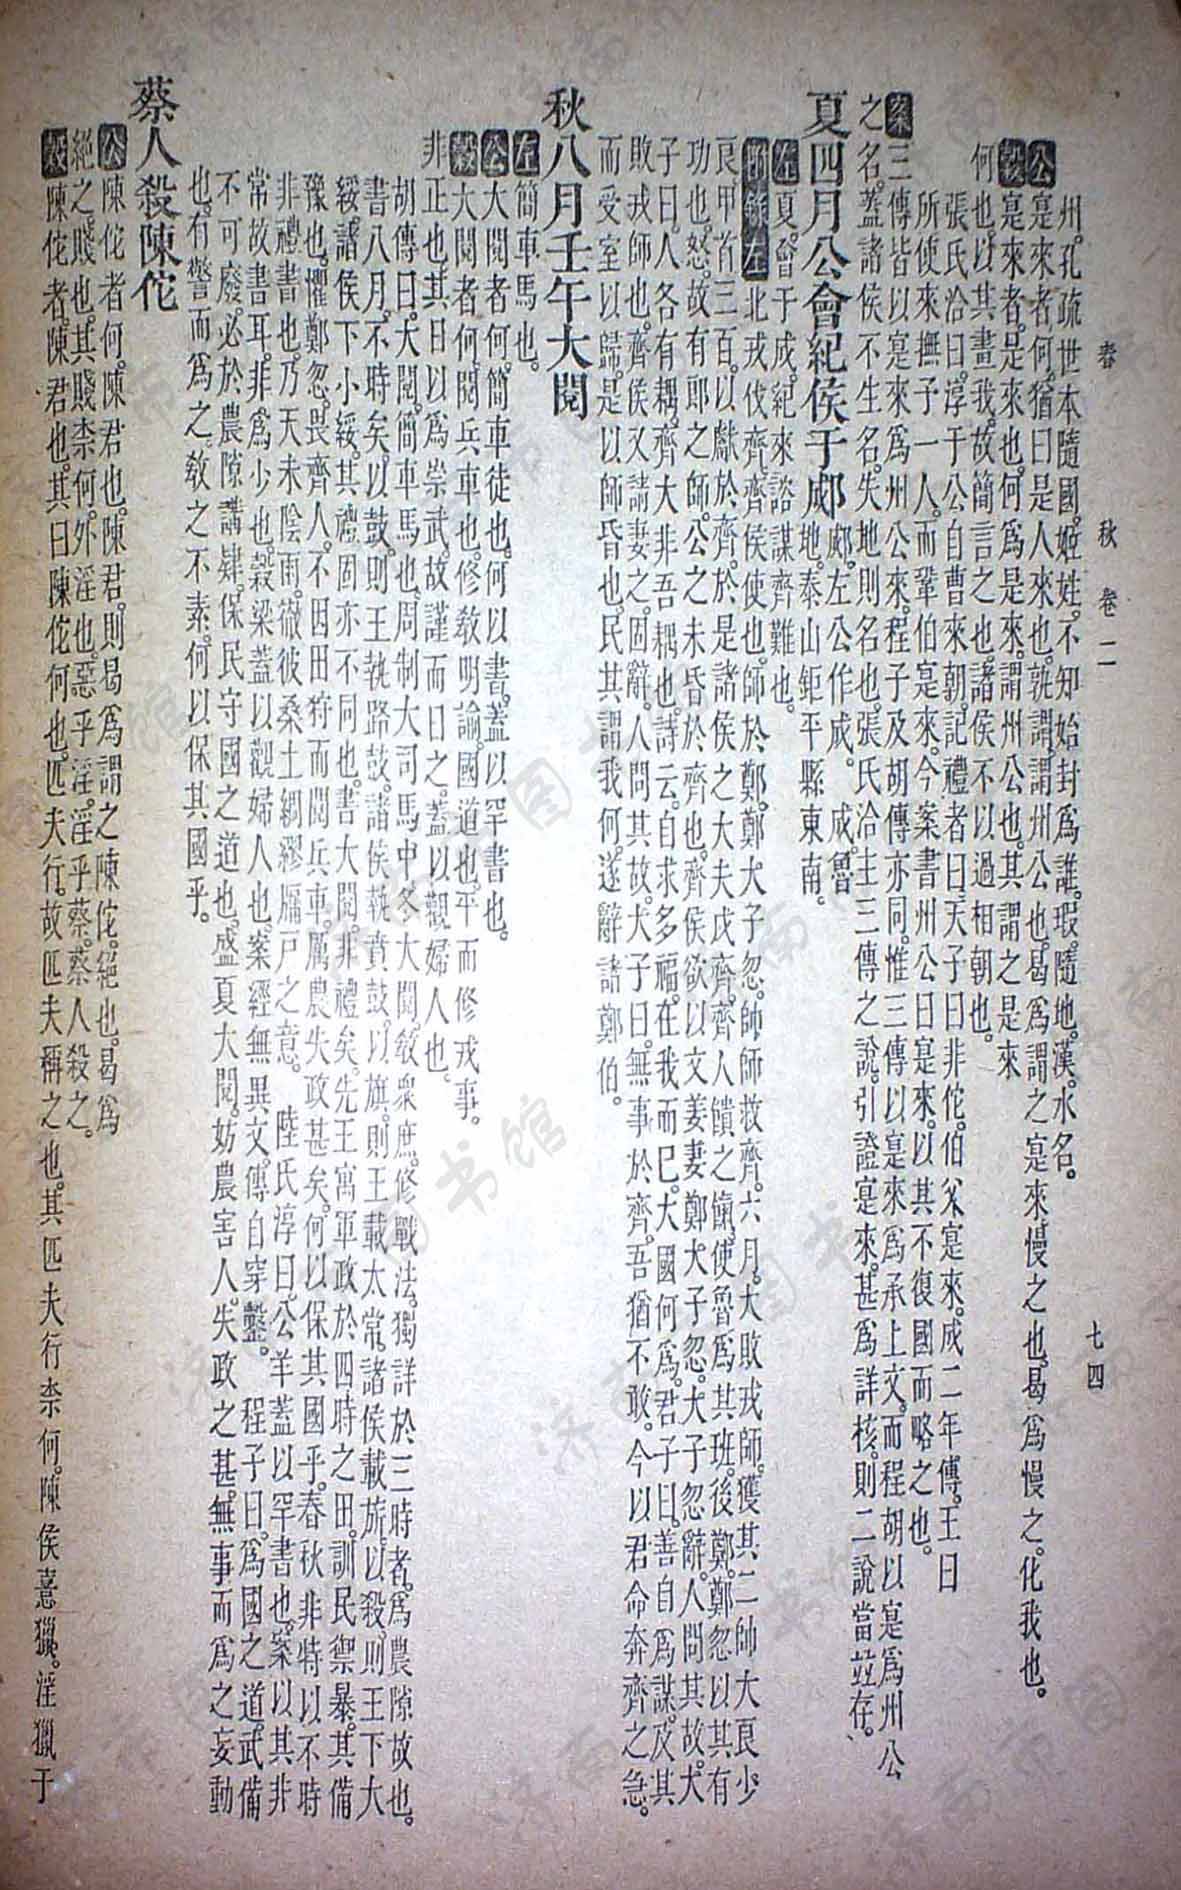 春　秋　卷二　　七四
州。孔疏世本隨國。姬姓。不知始封爲誰。瑕。隨地。漢。水名。
公寔來者何。猶曰是人來也。孰謂。謂州公也。曷爲謂之寔來。慢之也。曷爲慢之。化我也。
穀寔來者。是來也。何爲是來。謂州公也。其謂之是來
何也。以其畫我。故簡言之也。諸侯不以過相朝也。
張氏洽曰。淳于公自曹來朝。記禮者曰。天子曰非佗。伯父寔來。成二年傳。王曰
所使來撫予一人。而鞏伯寔來。今案書州公曰寔來。以其不復國而略之也。
案三傳皆以寔來爲州公來。程子及胡傳亦同。惟三傳以寔來爲承上文。而程胡以寔爲州公
之名。蓋諸侯不生名。失地則名也。張氏洽主三傳之說。引證寔來。甚爲詳核。則二說當並存。
夏四月公會紀侯于郕郕。左公作成。　成。魯
地。泰山鉅平縣東南。
左夏。會于成。紀來諮謀齊難也。
附錄左北戎伐齊。齊侯使乞師於鄭。鄭大子忽。帥師救齊。六月。大敗戎師。獲其二帥大良少
良。甲首三百。以獻於齊。於是諸侯之大夫戍齊。齊人饋之餼。使魯爲其班。後鄭。鄭忽以其有
功也。怒。故有郎之師。公之未昏於齊也。齊侯欲以文姜妻鄭大子忽。大子忽辭。人問其故。大
子曰。人各有耦。齊大非吾耦也。詩云。自求多福。在我而已。大國何爲。君子曰。善自爲謀。及其
敗戎師也。齊侯又請妻之。固辭。人問其故。大子曰。無事於齊。吾猶不敢。今以君命奔齊之急。
而受室以歸。是以師昏也。民其謂我何。遂辭諸鄭伯。
秋八月壬午大閱
左簡車馬也。
公大閱者何。簡車徒也。何以書。蓋以罕書也。
穀大閱者何。閱兵車也。修敎明諭。國道也。平而修戎事。
非正也。其日以爲崇武。故謹而日之。蓋以觀婦人也。
胡傳曰。大閱。簡車馬也。周制大司馬中冬大閱。敎衆庶。修戰法。獨詳於三時者。爲農隙故也。
書八月。不時矣。以鼓。則王執路鼓。諸侯執賁鼓。以旗。則王載太常。諸侯載旂。以殺。則王下大
綏。諸侯下小綏。其禮固亦不同也。書大閱。非禮矣。先王寓軍政於四時之田。訓民禦暴。其備
豫也。懼鄭忽。畏齊人。不因田狩而閱兵車。厲農失政甚矣。何以保其國乎。春秋非特以不時
非禮書也。乃天未陰雨。徹彼桑土。綢繆牖戶之意。　陸氏淳曰。公羊蓋以罕書也。案以其非
常故書耳。非爲少也。穀梁蓋以觀婦人也。案經無異文。傳自穿鑿。　程子曰。爲國之道。武備
不可廢。必於農隙講肄。保民守國之道也。盛夏大閱。妨農害人。失政之甚。無事而爲之妄動
也。有警而爲之。敎之不素。何以保其國乎。
蔡人殺陳佗
公陳佗者何。陳君也。陳君。則曷爲謂之陳佗。絕也。曷爲
絕之。賤也。其賤柰何。外淫也。惡乎淫。淫乎蔡。蔡人殺之。
穀陳佗者。陳君也。其曰陳佗何也。匹夫行。故匹夫稱之也。其匹夫行柰何。陳侯憙獵。淫獵于